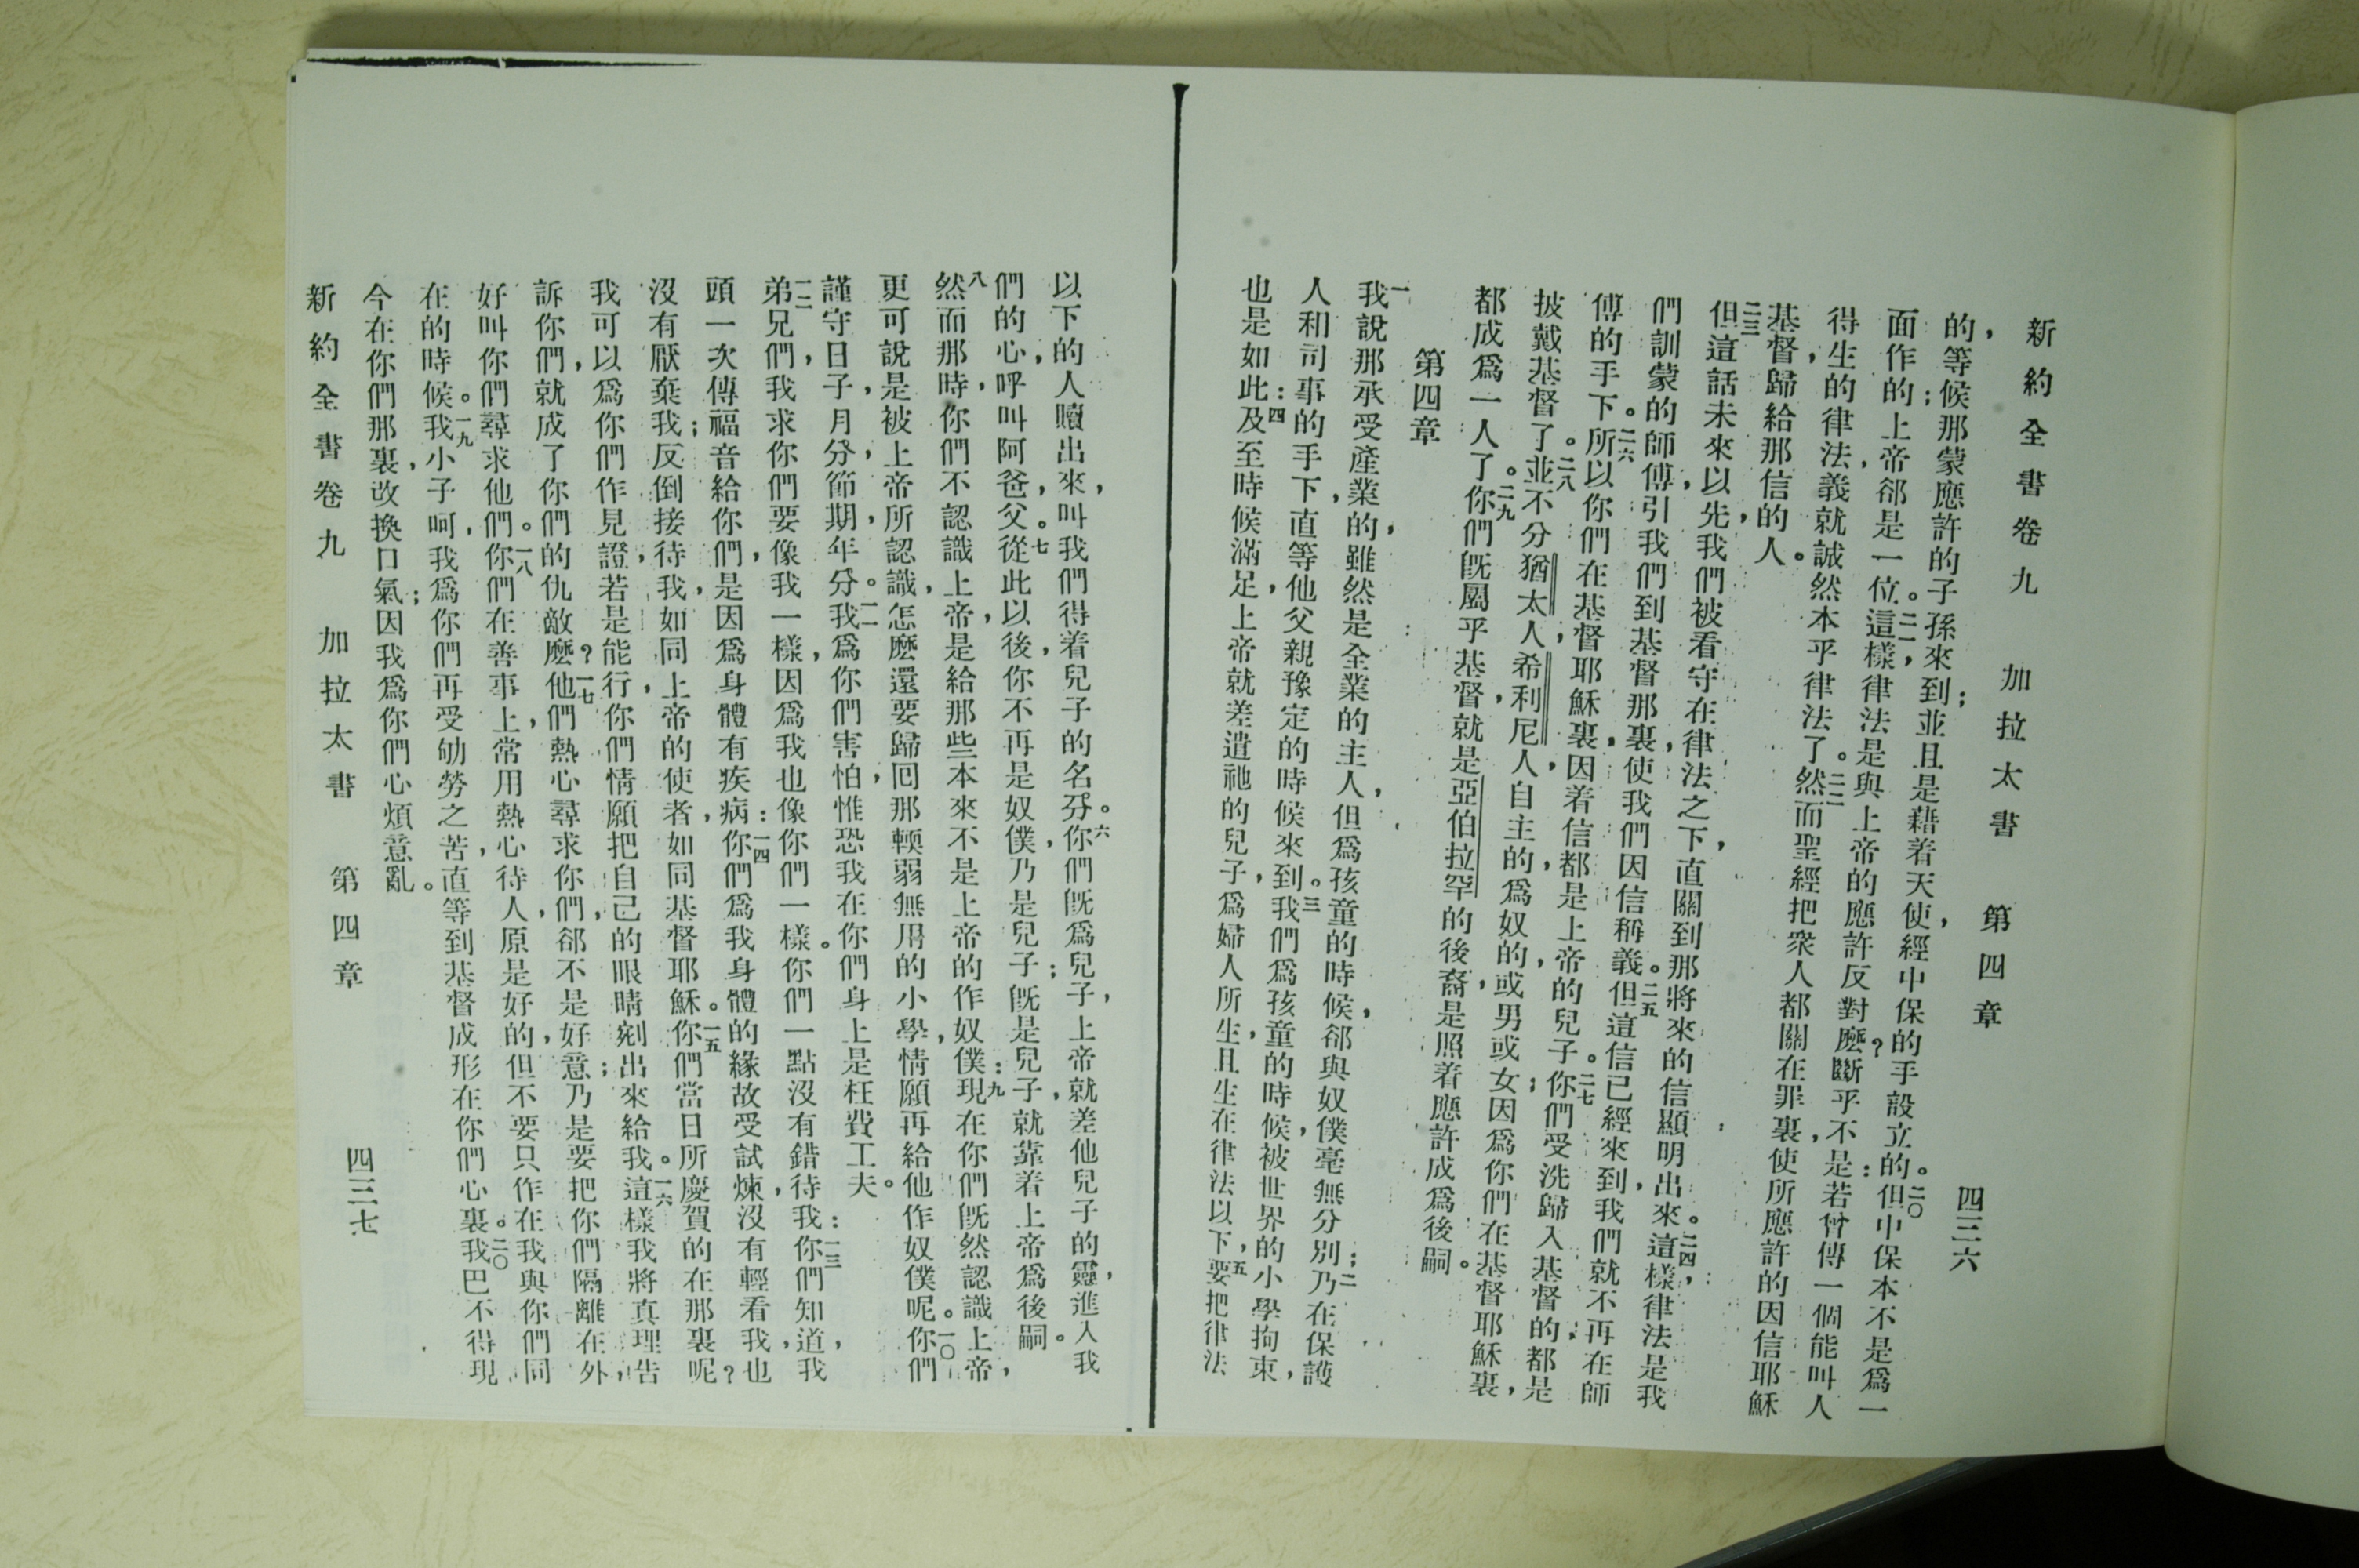 新約全書卷九 加拉太書 第四章 四三六
的，等候那蒙應許的子孫來到；並且是藉着天使，經中保的手設立的。二〇但中保本不是爲一
面作的；上帝郤是一位。二一這樣，律法是與上帝的應許反對麽？斷乎不是：若曾傳一個能叫人
得生的律法，義就誠然本乎律法了。二二然而聖經把衆人都關在罪裏，使所應許的因信耶穌
基督，歸給那信的人。
二三但這話未來以先，我們被看守在律法之下，直關到那將來的信顯明出來。二四這樣，律法是我
們訓蒙的師傅，引我們到基督那裏，使我們因信稱義。二五但這信已經來到，我們就不再在師
傅的手下。二六所以你們在基督耶穌裏，因着信，都是上帝的兒子。二七你們受洗歸入基督的，都是
披戴基督了。二八並不分猶太人，希利尼人，自主的，爲奴的，或男或女；因爲你們在基督耶穌裏，
都成爲一人了。二九你們旣屬乎基督，就是亞伯拉罕的後裔，是照着應許成爲後嗣。
第四章
一我說那承受產業的，雖然是全業的主人，但爲孩童的時候，郤與奴僕毫無分別；二乃在保護
人和司事的手下，直等他父親豫定的時候來到。三我們爲孩童的時候，被世界的小學拘束，
也是如此：四及至時候滿足，上帝就差遣祂的兒子，爲婦人所生，且生在律法以下，五要把律法
以下的人贖出來，叫我們得着兒子的名分。六你們旣爲兒子，上帝就差他兒子的靈，進入我
們的心，呼叫阿爸，父。七從此以後，你不再是奴僕，乃是兒子；旣是兒子，就靠着上帝爲後嗣。
八然而那時，你們不認識上帝，是給那些本來不是上帝的作奴僕：九現在你們旣然認識上帝，
更可說是被上帝所認識，怎麽還要歸回那輭弱無用的小學，情願再給他作奴僕呢。一〇你們
謹守日子，月分，節期，年分。一一我爲你們害怕，惟恐我在你們身上是枉費工夫。
一二弟兄們，我求你們要像我一樣，因爲我也像你們一樣。你們一點沒有錯待我：一三你們知道我
頭一次傳福音給你們，是因爲身體有疾病：一四你們爲我身體的緣故受試煉，沒有輕看我，也
沒有厭棄我；反倒接待我，如同上帝的使者，如同基督耶穌。一五你們當日所慶賀的在那裏呢？
我可以爲你們作見證，若是能行，你們情願把自己的眼睛剜出來給我。一六這樣我將真理告
訴你們，就成了你們的仇敵麽？一七他們熱心尋求你們，郤不是好意；乃是要把你們隔離在外，
好叫你們尋求他們。一八你們在善事上，常用熱心待人，原是好的，但不要只作在我與你們同
在的時候。一九我小子呵，我爲你們再受劬勞之苦，直等到基督成形在你們心裏。二〇我巴不得現
今在你們那裏，改換口氣；因我爲你們心煩意亂。
新約全書卷九 加拉太書 第四章 四三七